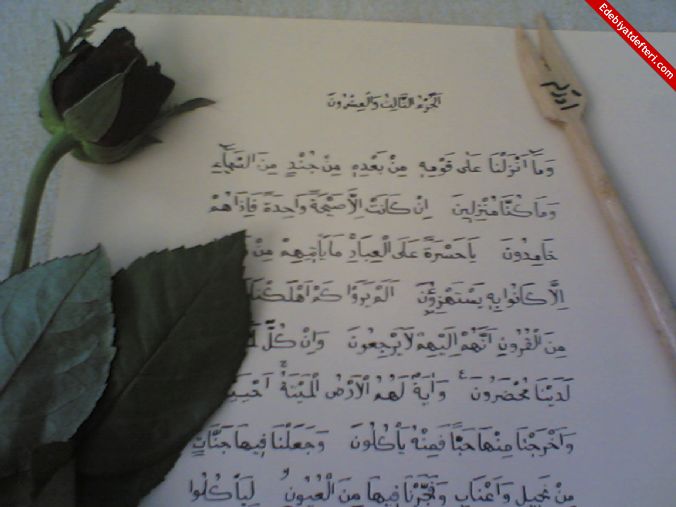 Edebiyatdefteri.com
الجزء الثالث والعشرون
وما انزلنا على قومه من بعده من جند من السماء
وما كنا منزلين ان كانت الا صيحة واحدة فاذا هم
خامدون يا حسرة على العباد ما ياتيهم من
الا كانوا به يستهزؤن الم يروا كم اهلكنا
من القرون انهم اليهم لا يرجعون وان كل
لدينا محضرون واية لهم الارض الميتة
واخرجنا منها حبا فمنه ياكلون وجعلنا فيها جنات
من نخيل واعناب وفجرنا فيها من العيون لياكلوا